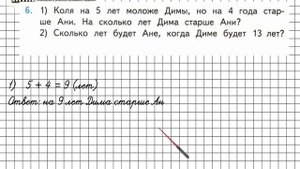 6. 1) Коля на 5 лет моложе Димы, но на 4 года стар-
ше Ани. На сколько лет Дима старше Ани?
2) Сколько лет будет Ане, когда Диме будет 13 лет?
1) 5 + 4 = 9 (лет)
Ответ: на 9 лет Дима старше Ан